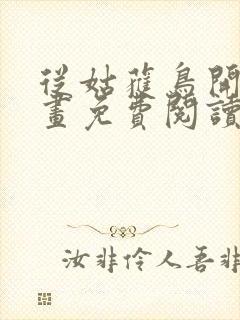 從姑蘿鳥開
畫免費閱讀
汝非伶人吾非